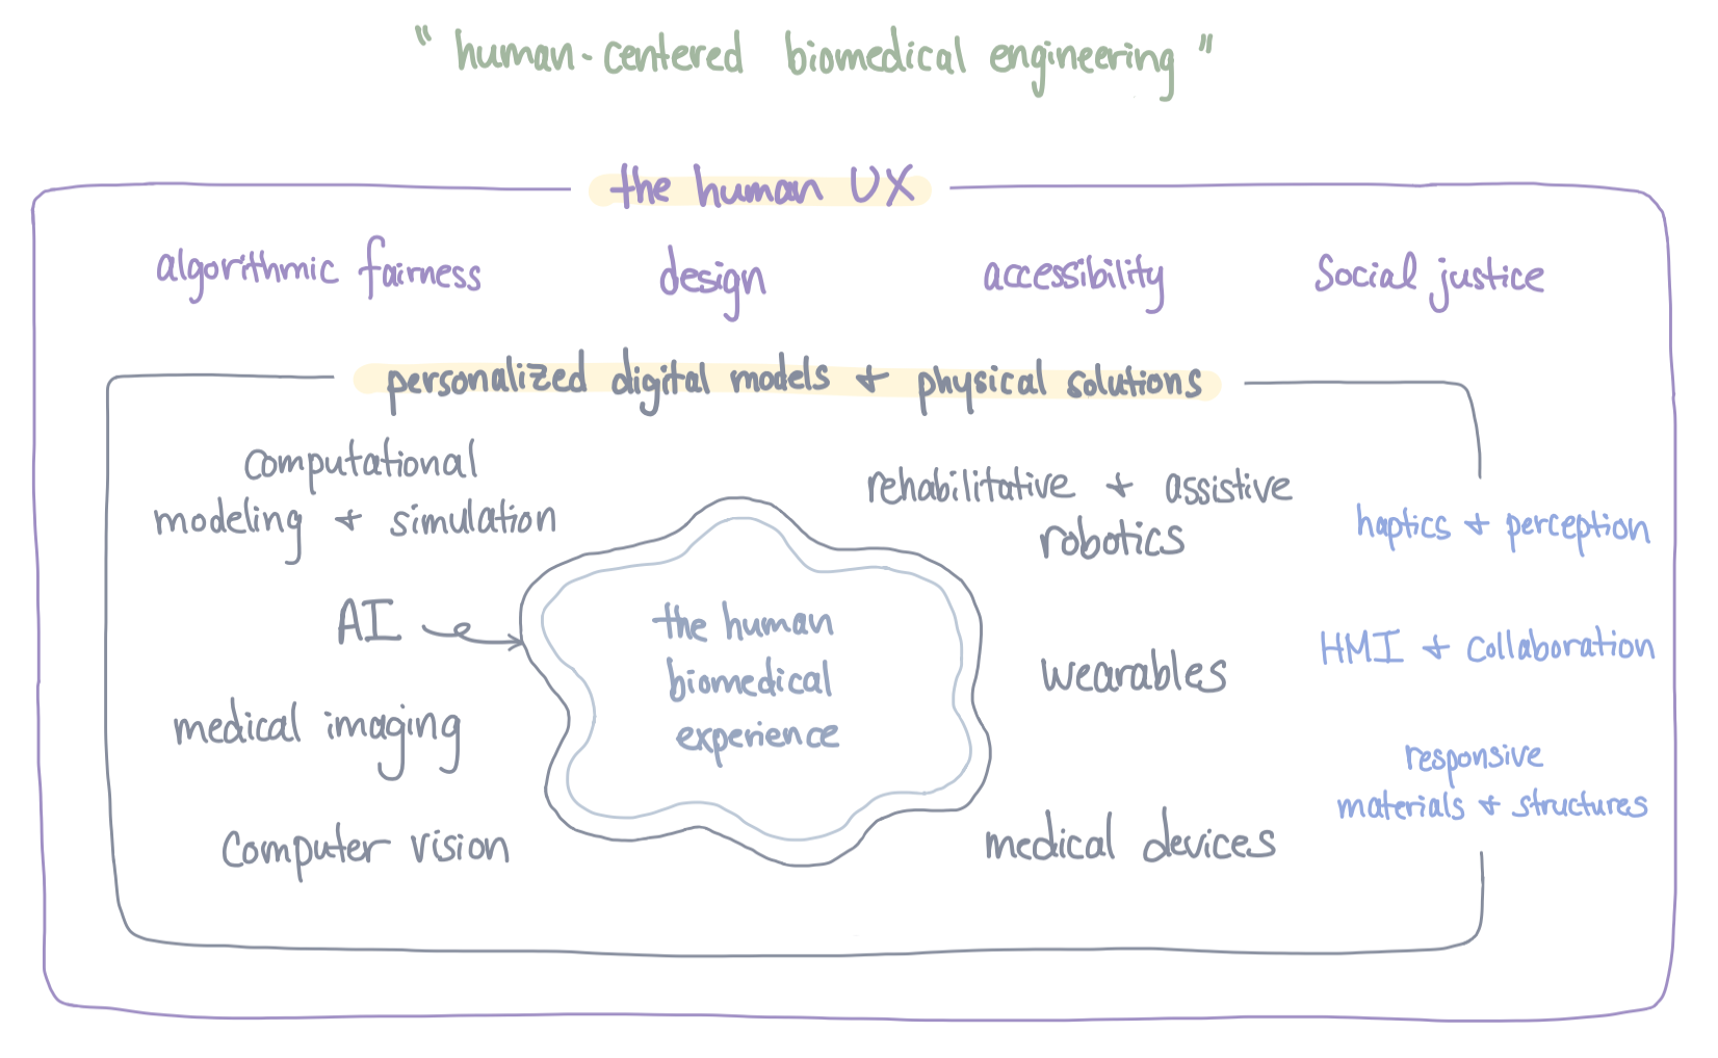 " human-centered biomedical engineering "
the human UX
algorithmic fairness
design
accessibility
Social justice
personalized digital models + physical solutions
computational
modeling + simulation
AI
medical imaging
Computer vision
the human
biomedical
experience
rehabilitative + assistive
robotics
wearables
medical devices
haptics + perception
HMI + Collaboration
responsive
materials + structures